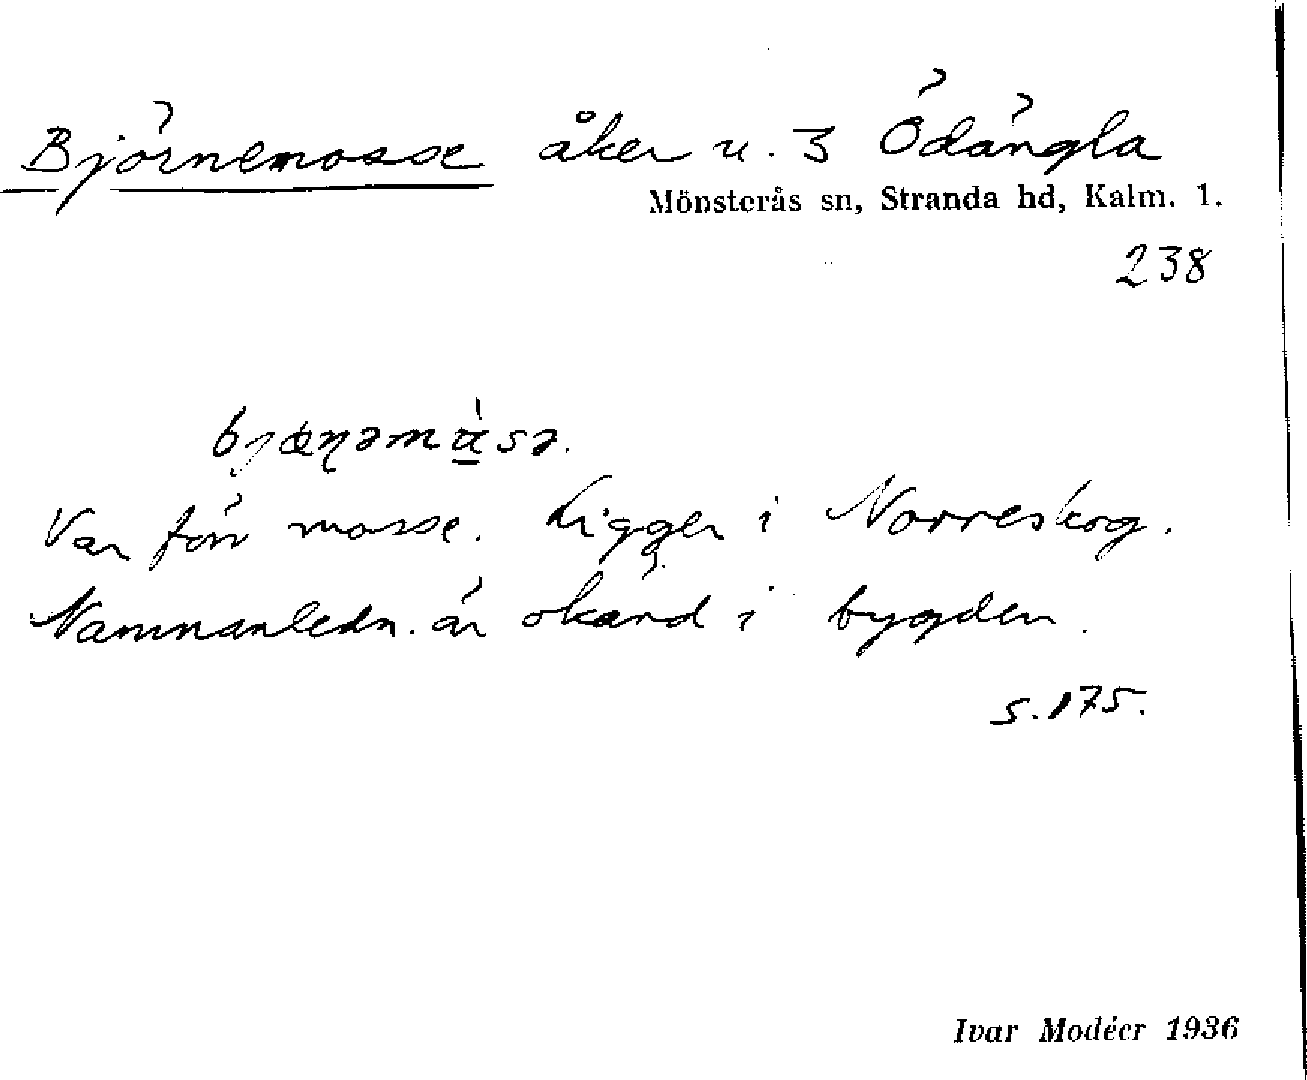 Björnemosse åker u. 3 Ödängla
Mönsterås sn, Stranda hd, Kalm. l.
238
Var förr mosse. Ligger i Norreskog.
Namnanledn. är okänd i bygden.
s. 175.
Ivar Modéer 1936